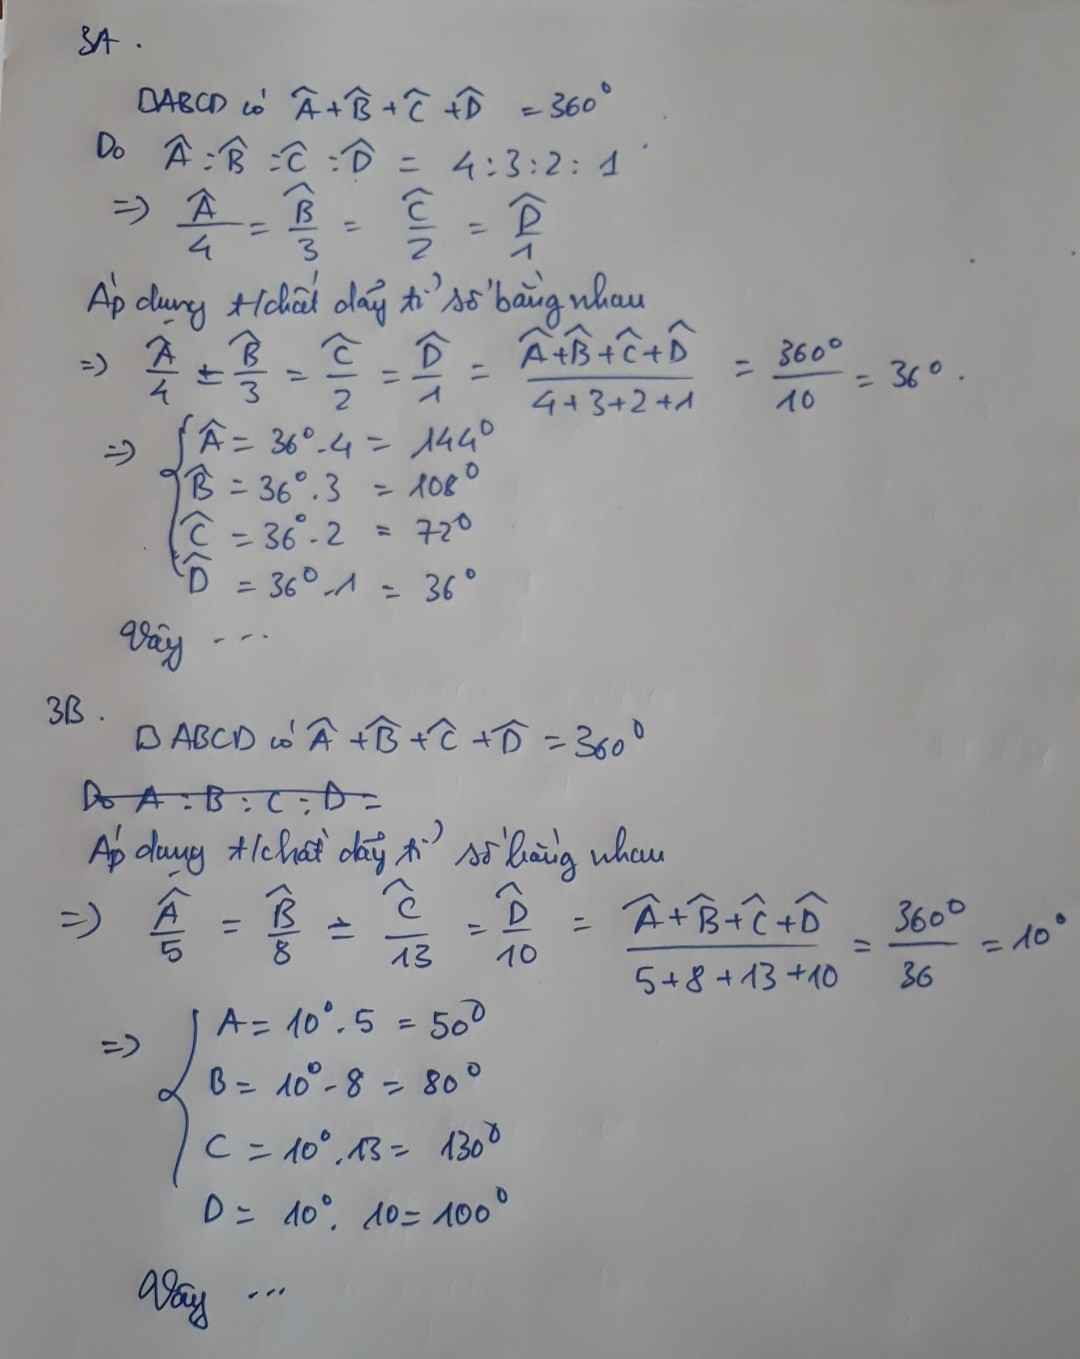 3A.
▱ABCD có Â + B̂ + Ĉ + D̂ = 360°
Do Â : B̂ : Ĉ : D̂ = 4 : 3 : 2 : 1
=> Â/4 = B̂/3 = Ĉ/2 = D̂/1
Áp dụng t/chất dãy tỉ số bằng nhau
=> Â/4 = B̂/3 = Ĉ/2 = D̂/1 = (Â+B̂+Ĉ+D̂)/(4+3+2+1) = 360°/10 = 36°.
=> { Â = 36°.4 = 144°
B̂ = 36°.3 = 108°
Ĉ = 36°.2 = 72°
D̂ = 36°.1 = 36°
Vậy ...
3B.
▱ABCD có Â + B̂ + Ĉ + D̂ = 360°
Do A : B : C : D =
Áp dụng t/chất dãy tỉ số bằng nhau
=> Â/5 = B̂/8 = Ĉ/13 = D̂/10 = (Â+B̂+Ĉ+D̂)/(5+8+13+10) = 360°/36 = 10°
=> { A = 10°.5 = 50°
B = 10°.8 = 80°
C = 10°.13 = 130°
D = 10°.10 = 100°
Vậy ...